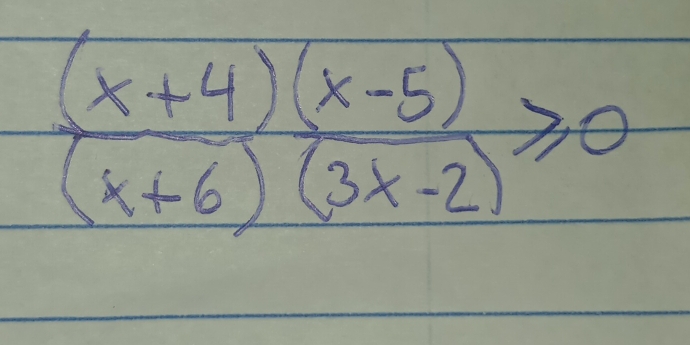 (x+4)(x-5)
(x+6)(3x-2) ⩾0